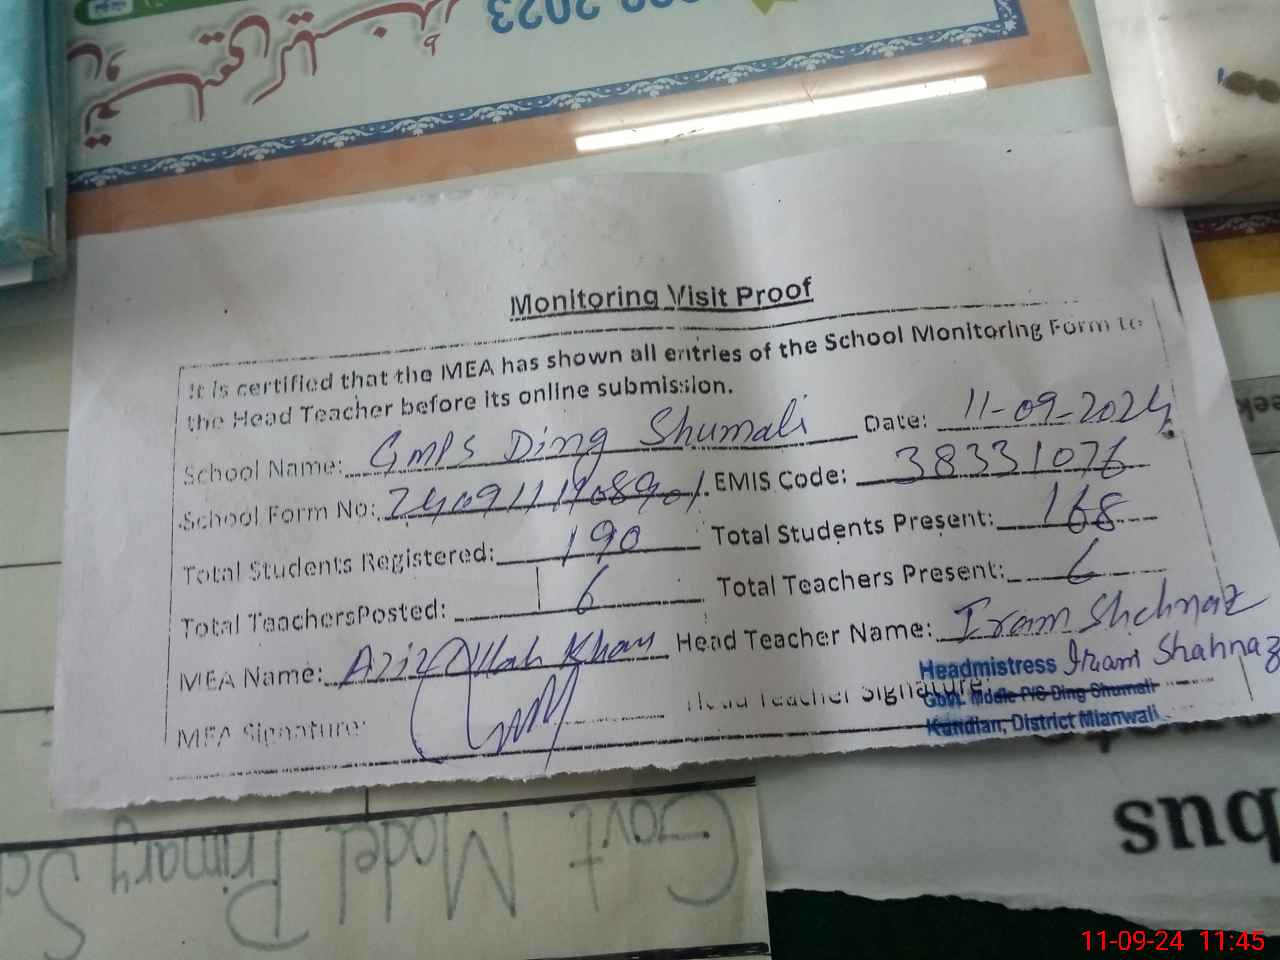 2023
Monitoring Visit Proof
It is certified that the MEA has shown all entries of the School Monitoring Form to
the Head Teacher before its online submission.
School Name: GMPS Ding Shumali Date: 11-09-2024
School Form No: EMIS Code: 38331076
Total Students Registered: 190 Total Students Present: 168
Total TeachersPosted: 6 Total Teachers Present: 6
MEA Name: Aziz Ullah Khan Head Teacher Name: Iram Shehnaz
MEA Signature: Head Teacher Signature:
Headmistress Iram Shahnaz
Govt. Model P/S Ding Shumali
Kundian, District Mianwali
Govt Model Primary Sc
bus
11-09-24 11:45